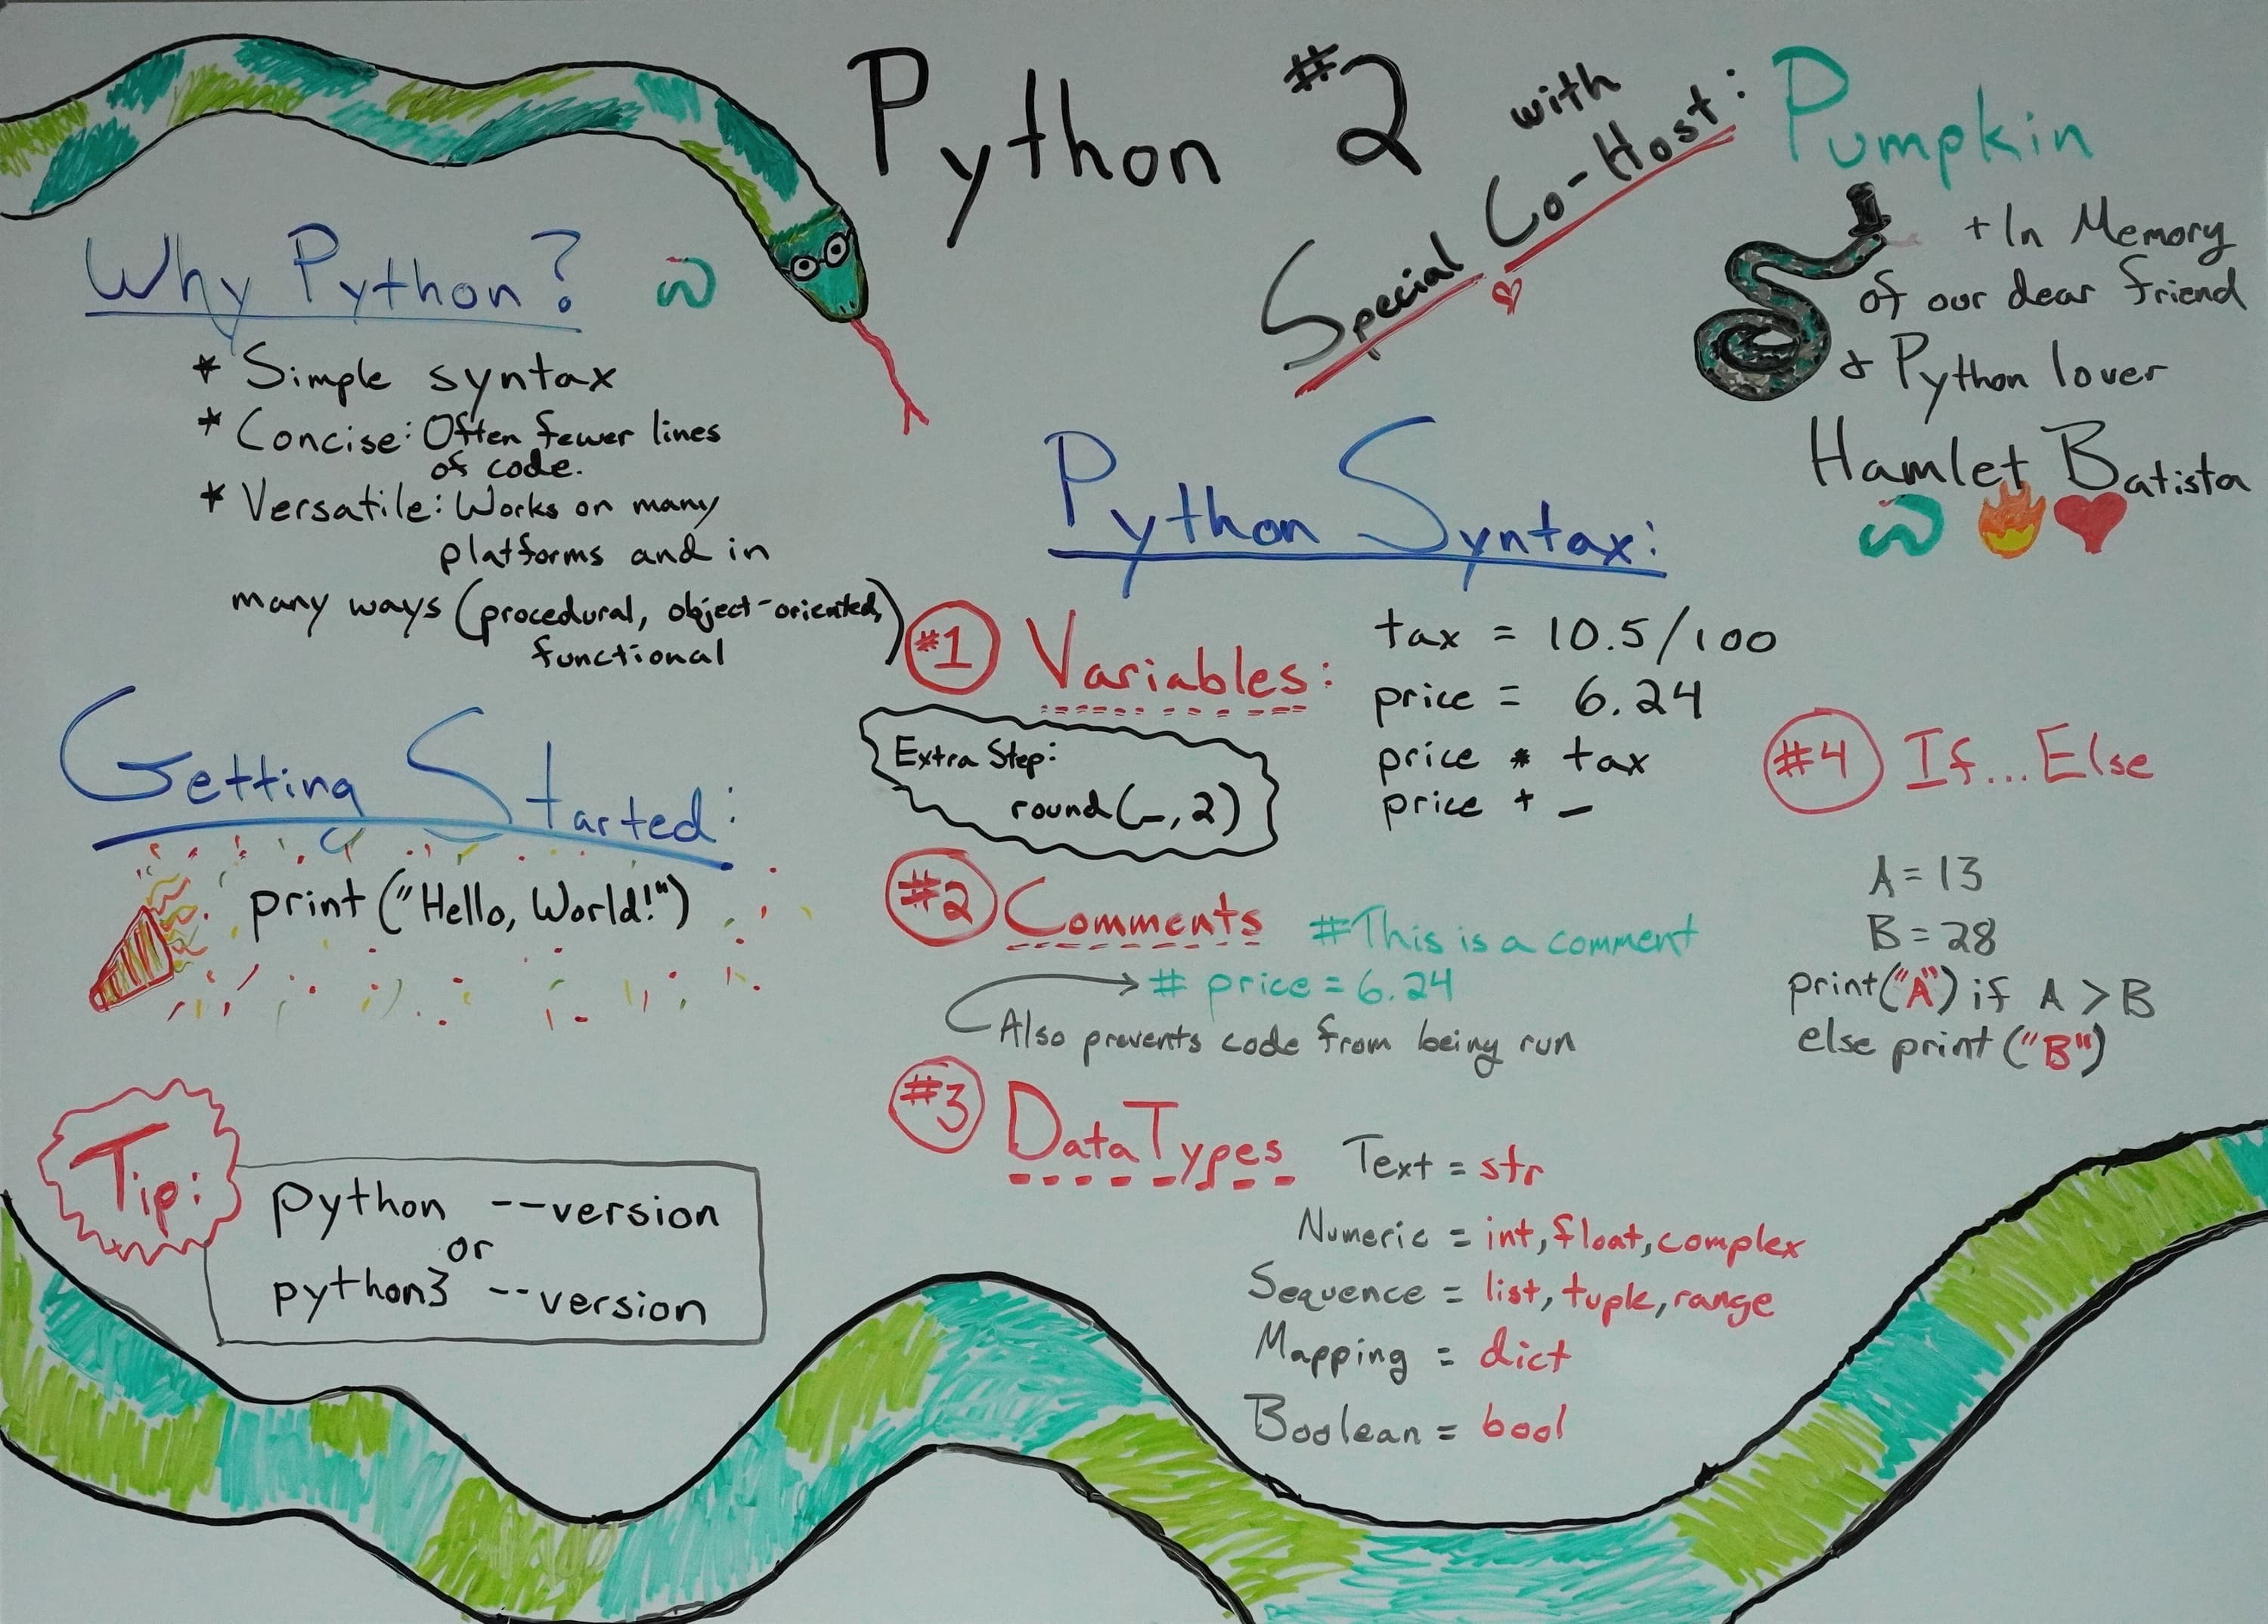 Python #2
with
Special Co-Host:
Pumpkin
+ In Memory
of our dear friend
& Python lover
Hamlet Batista
Why Python?
* Simple syntax
* Concise: Often fewer lines
of code.
* Versatile: Works on many
platforms and in
many ways (procedural, object-oriented,
functional)
Getting Started:
print("Hello, World!")
Tip:
python --version
or
python3 --version
Python Syntax:
#1 Variables:
tax = 10.5/100
price = 6.24
price * tax
price + _
Extra Step:
round(_, 2)
#2 Comments
#This is a comment
# price = 6.24
Also prevents code from being run
#3 Data Types
Text = str
Numeric = int, float, complex
Sequence = list, tuple, range
Mapping = dict
Boolean = bool
#4 If...Else
A = 13
B = 28
print("A") if A > B
else print("B")